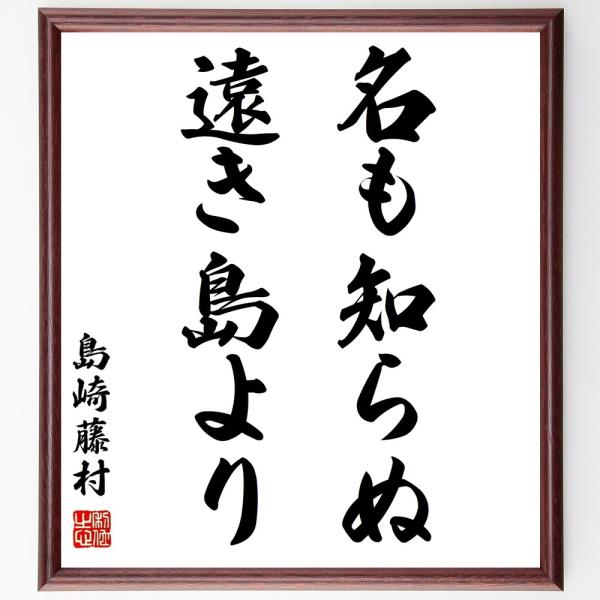 名も知らぬ
遠き島より
島崎藤村